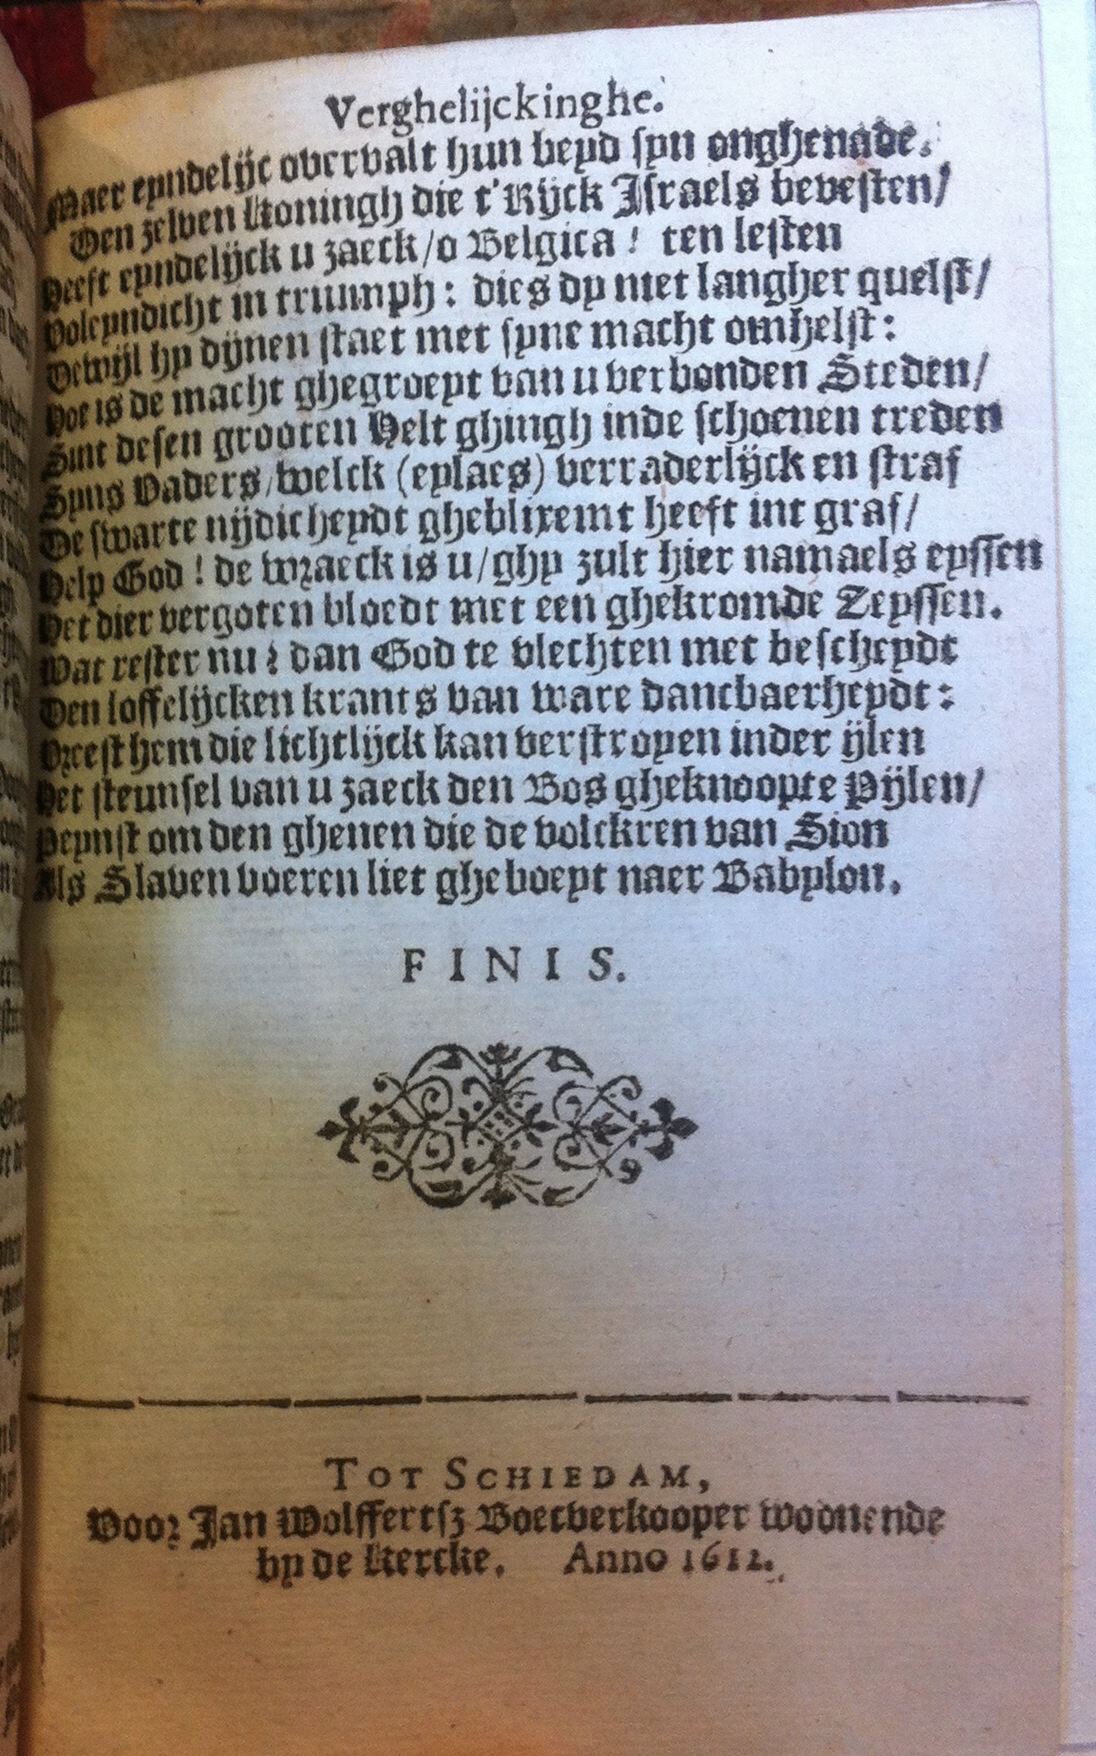 Verghelijckinghe.
Maer eyndelijc overvalt hun beyd syn onghenade.
Den zelven Koningh die t'Rijck Israels bevesten/
Heeft eyndelijck u zaeck/o Belgica! ten lesten
Voleyndicht in triumph: dies dy niet langher quelst/
Dewijl hy dijnen staet met syne macht omhelst:
Hoe is de macht ghegroeyt van u verbonden Steden/
Sint desen grooten Helt ghingh inde schoenen treden
Syns Vaders/welck (eylaes) verraderlijck en straf
De swarte nijdicheydt gheblixemt heeft int graf/
Help God! de wraeck is u/ghy zult hier namaels eyssen
Het dier vergoten bloedt met een ghekromde Zeyssen.
Wat rester nu? dan God te vlechten met bescheydt
Den loffelijcken krants van ware dancbaerheydt:
Vreest hem die lichtlijck kan verstroyen inder ijlen
Het steunsel van u zaeck den Bos gheknoopte Pijlen/
Peynst om den ghenen die de volckren van Sion
Als Slaven voeren liet gheboeyt naer Babylon.
FINIS.
TOT SCHIEDAM,
Voor Jan Wolffertsz Boecverkooper woonende
by de Kercke. Anno 1612.